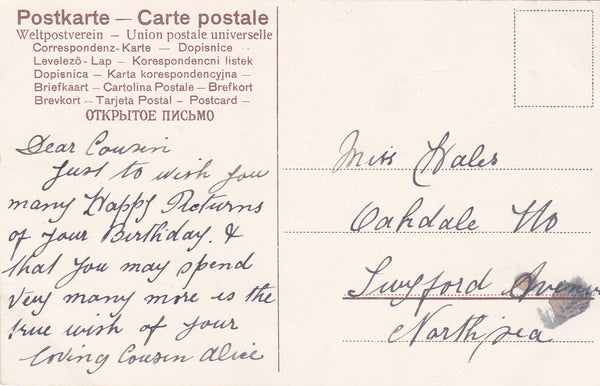 Postkarte — Carte postale
Weltpostverein — Union postale universelle
Correspondenz-Karte — Dopisnice
Levelező-Lap — Korespondencni listek
Dopisnica — Karta korespondencyjna —
Briefkaart — Cartolina Postale — Brefkort
Brevkort — Tarjeta Postal — Postcard —
ОТКРЫТОЕ ПИСЬМО
Dear Cousin
Just to wish you
many Happy Returns
of your Birthday. &
that you may spend
very many more is the
true wish of your
loving Cousin Alice
Miss Hales
Oakdale Ho
Avenue
Northsea